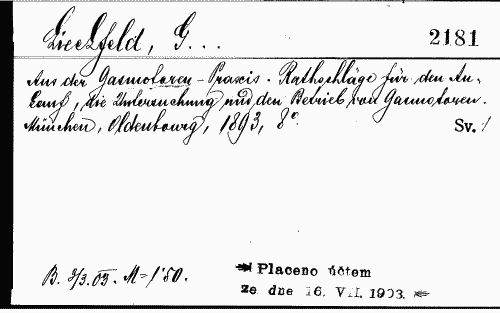 Lieckfeld, G...
2181
Aus der Gasmotoren-Praxis. Rathschläge für den An-
kauf, die Untersuchung und den Betrieb von Gasmotoren.
München, Oldenbourg, 1893, 8°.
Sv. 1
B. 3/3.03. M=1'80.
Placeno účtem
ze dne 16. VII. 1903.